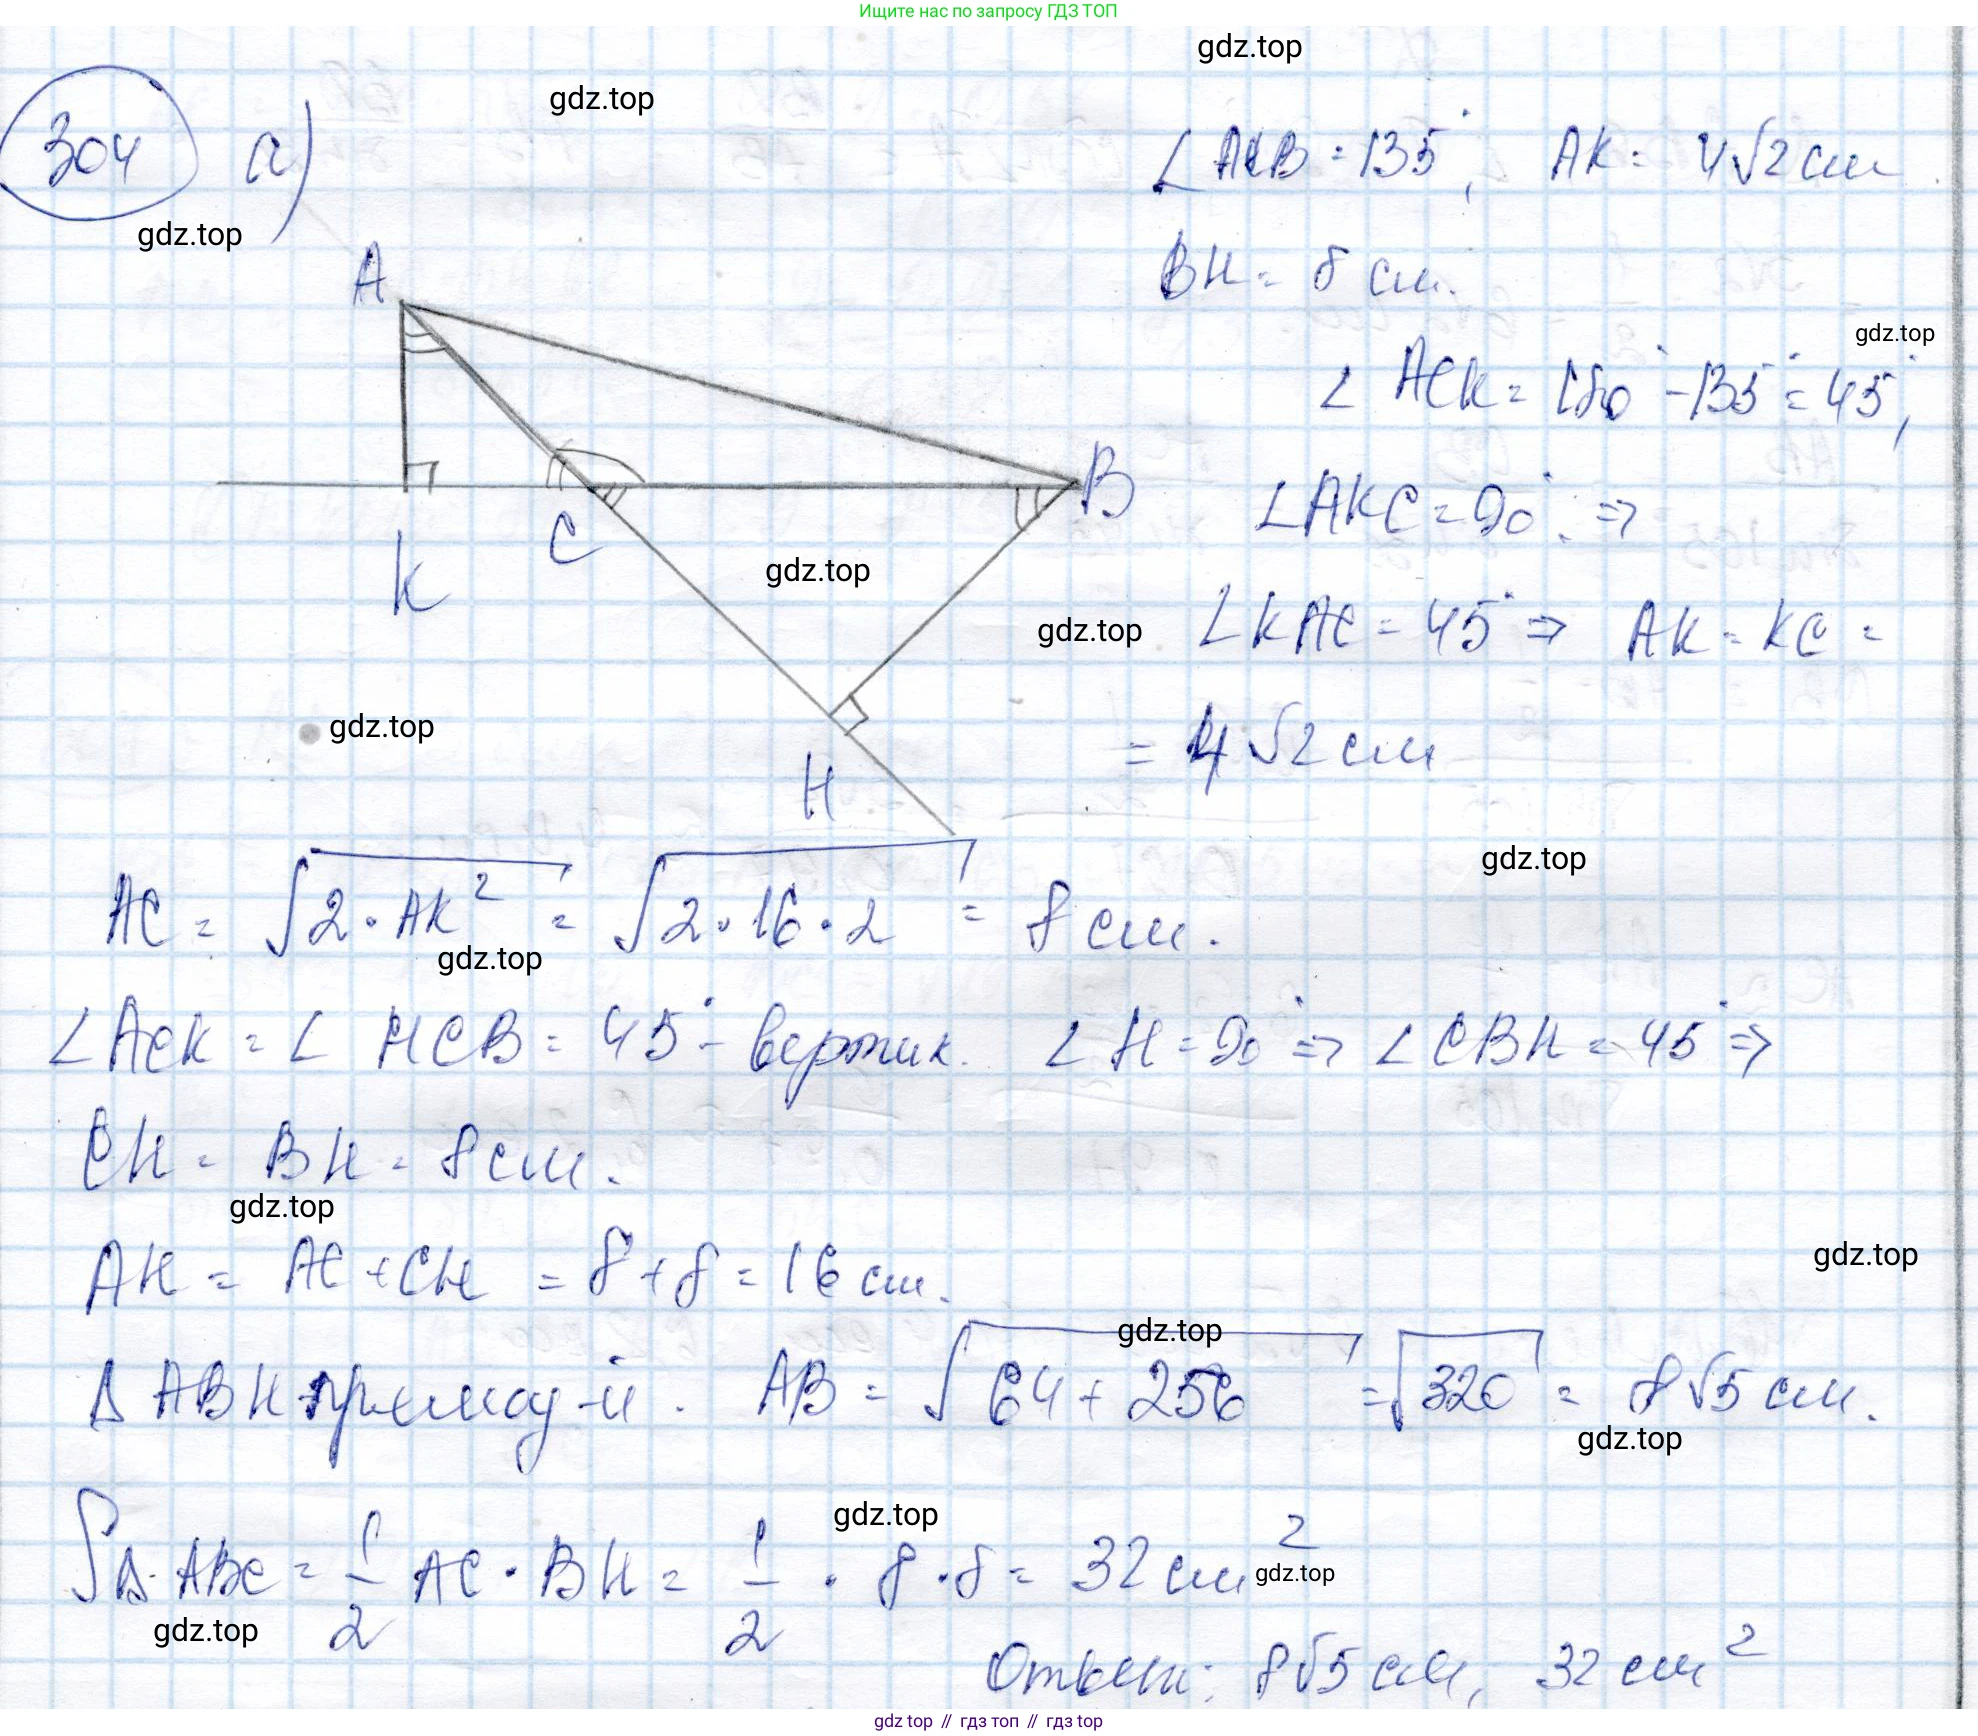 Ищите нас по запросу ГДЗ ТОП
gdz.top
gdz.top
304 а)
∠ACB = 135°, AK = 4√2 см
gdz.top
A
BH = 8 см.
gdz.top
∠ ACK = 180° - 135° = 45°,
B
∠AKC = 90° ⇒
K
C
gdz.top
gdz.top
∠KAC = 45° ⇒ AK = KC =
gdz.top
= 4√2 см
H
gdz.top
AC = √2 · AK² = √2 · 16 · 2 = 8 см.
gdz.top
∠ACK = ∠ HCB = 45° - вертик. ∠H = 90° ⇒ ∠CBH = 45° ⇒
CH = BH = 8 см.
gdz.top
AH = AC + CH = 8 + 8 = 16 см.
gdz.top
gdz.top
Δ ABH - прямоуг-й. AB = √64 + 256 = √320 = 8√5 см.
gdz.top
gdz.top
SΔ ABC = 1/2 AC · BH = 1/2 · 8 · 8 = 32 см²
gdz.top
gdz.top
Ответ: 8√5 см, 32 см²
gdz top // гдз топ // гдз top